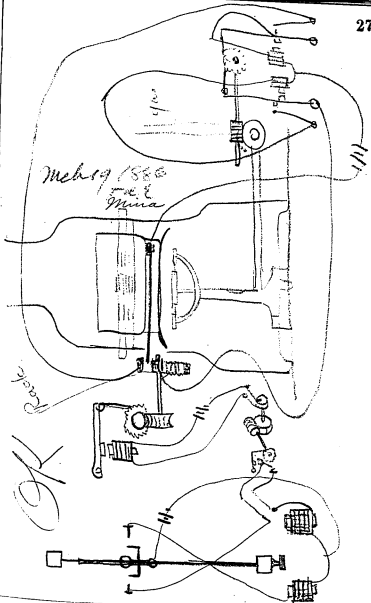 27
Mch 19 1886
TAE
Mina
Rack
OK